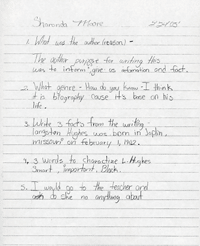 Sharonda Moore
1. What was the author (reason) -
The author purpose for writing this
was to inform, give us information and fact.
2. What genre - How do you know - I think
it is biography cause it's base on his
life.
3. Write 3 facts from the writing
Langston Hughes was born in Joplin,
missouri on February 1, 1902.
4. 3 words to charactize L. Hughes
Smart, Important, Black.
5. I would go to the teacher and
do she no anything about